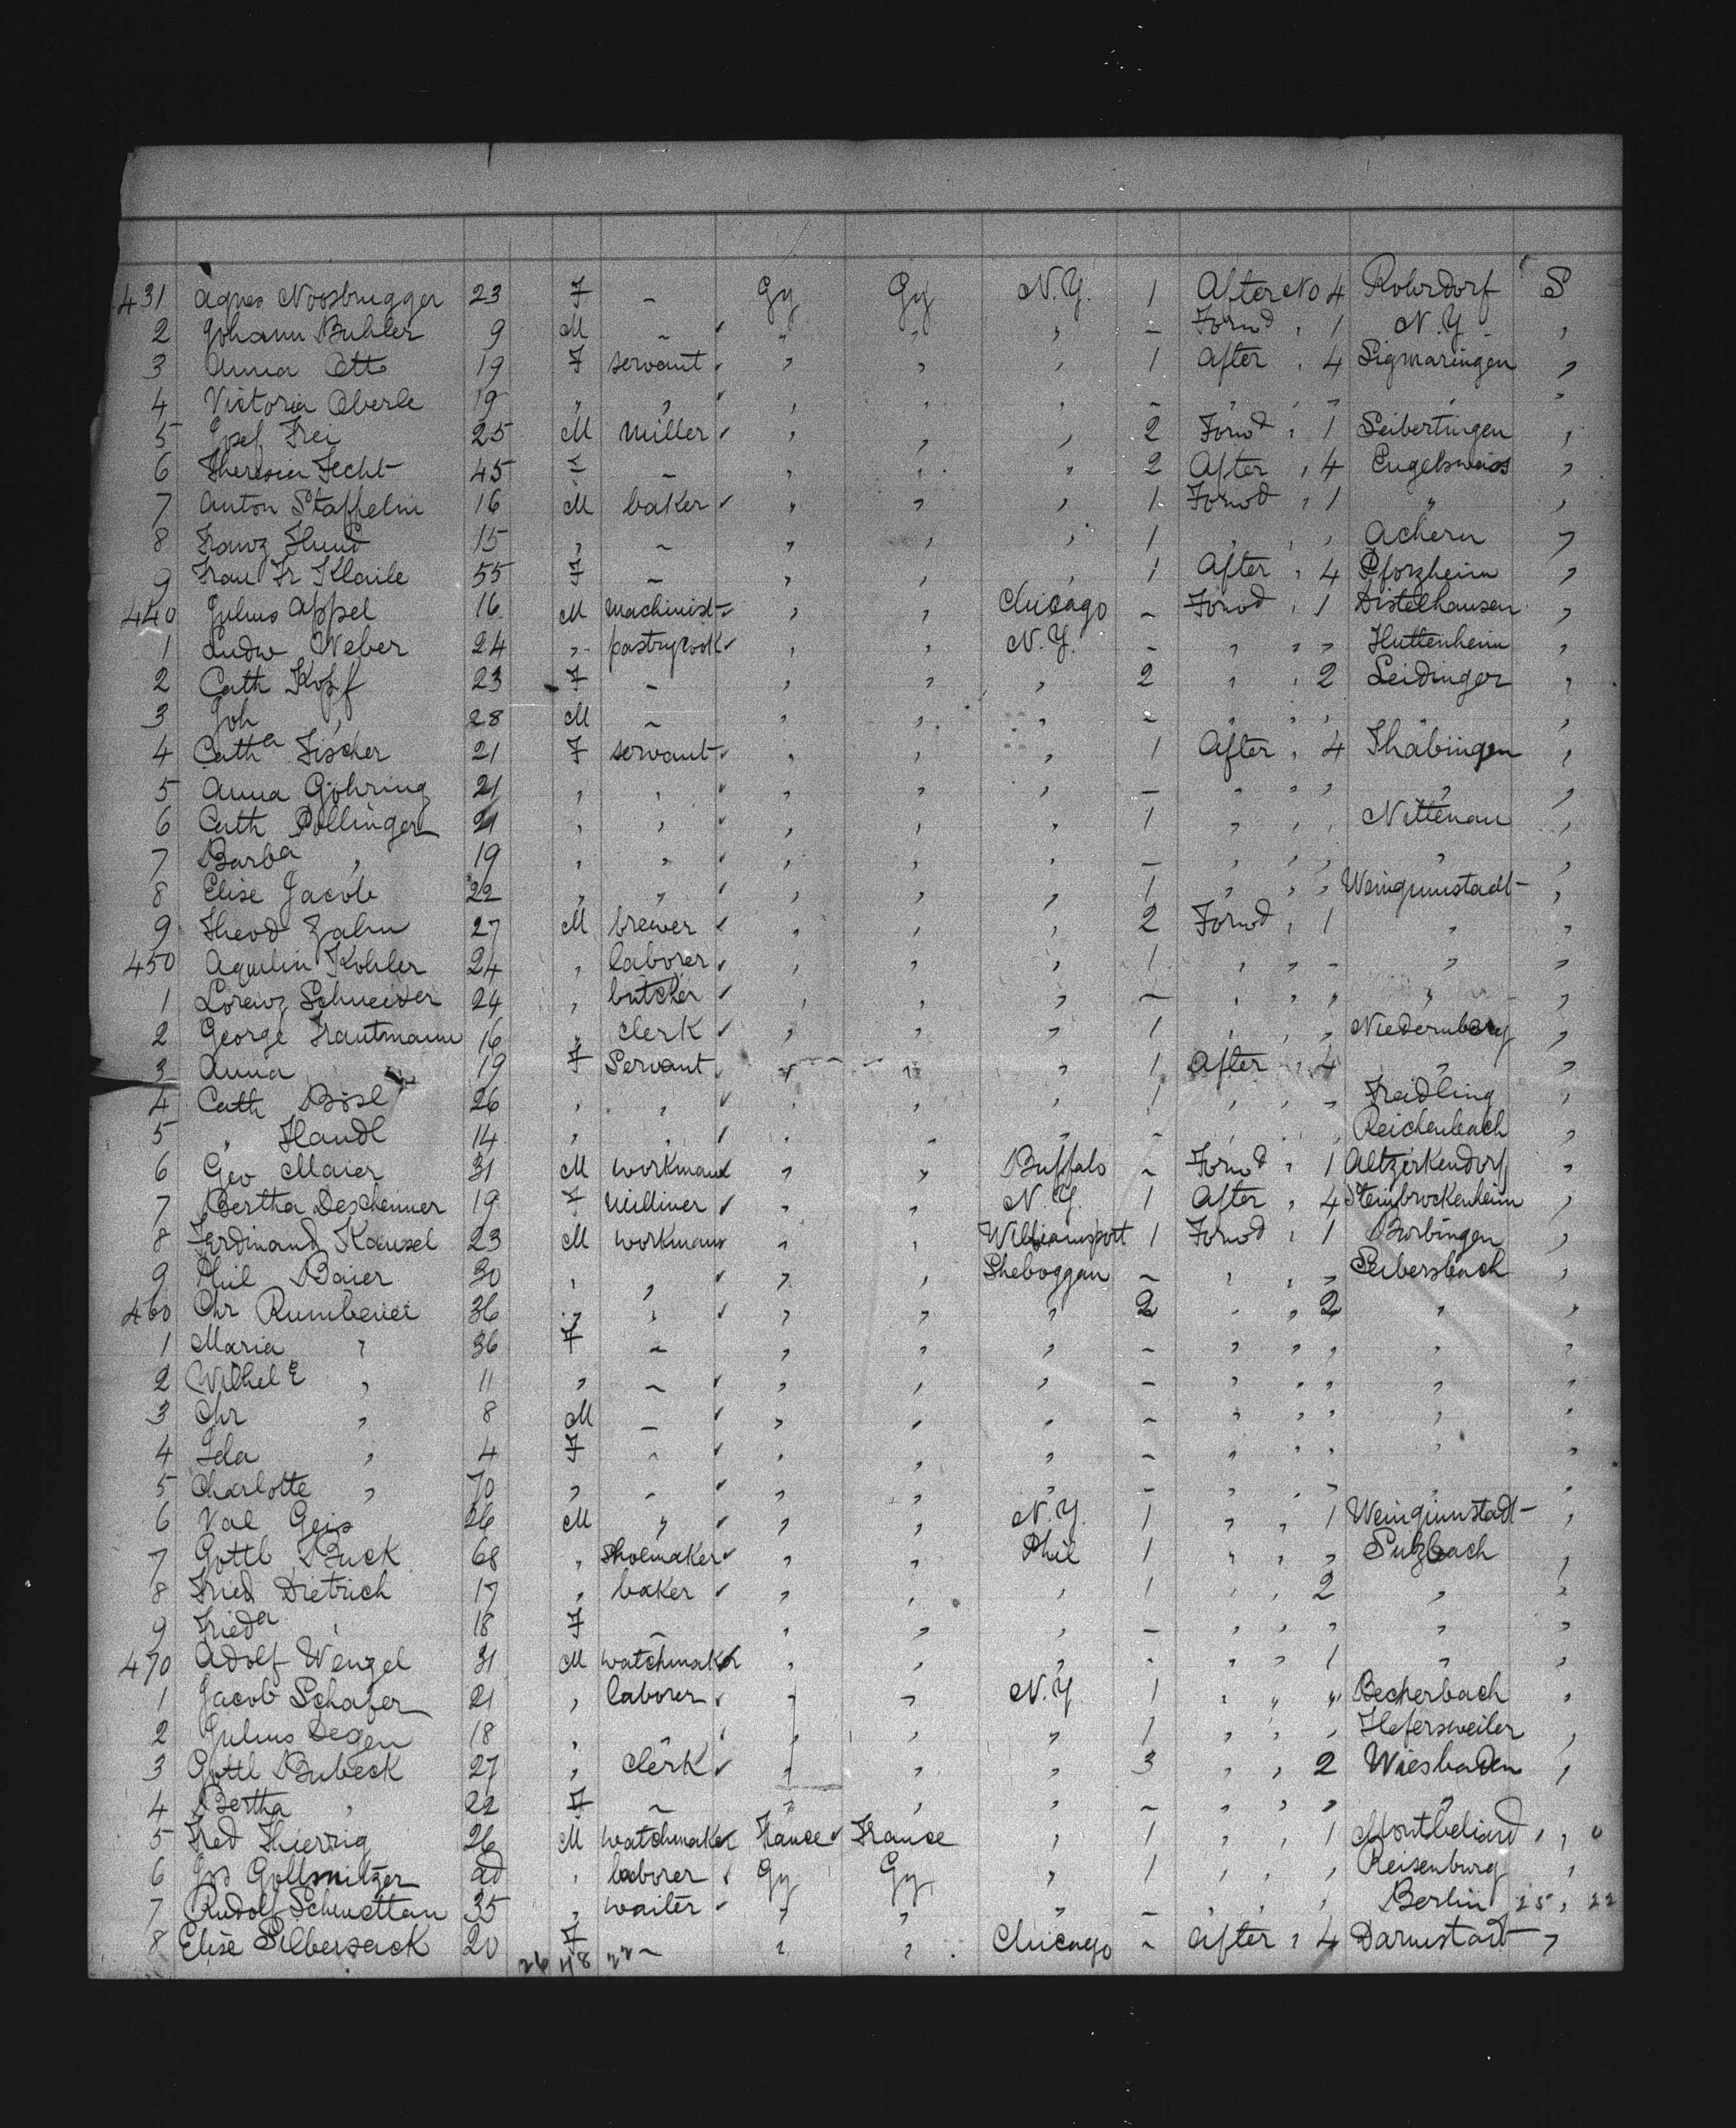 431 Agnes Noosbrugger 23 F – Gy Gy N.Y. 1 After No 4 Rohrdorf S
2 Johann Buhler 9 M – " " " – Forwd " 1 N.Y. "
3 Anna Otto 19 F servant " " " 1 After " 4 Sigmaringen "
4 Victoria Oberle 19 " " " " " – " " " " "
5 Josef Frei 25 M Miller " " " 2 Forwd " 1 Seibertingen "
6 Theresia Fecht 45 F – " " " 2 After " 4 Engelsweiss "
7 Anton Staffelin 16 M baker " " " 1 Forwd " 1 " "
8 Franz Hund 15 " – " " " 1 " " " Achern "
9 Frau Fr Klaile 55 F – " " " 1 After " 4 Pforzheim "
440 Julius Appel 16 M Machinist " " Chicago – Forwd " 1 Distelhausen "
1 Ludw Weber 24 " pastrycook " " N.Y. – " " " Huttenheim "
2 Cath Kopf 23 F – " " " 2 " " 2 Leidinger "
3 Joh " 28 M – " " " – " " " " "
4 Catha Fischer 21 F servant " " " 1 After " 4 Thabingen "
5 Anna Göhring 21 " " " " " – " " " " "
6 Cath Pollinger 21 " " " " " 1 " " " Nittenau "
7 Barba " 19 " " " " " – " " " " "
8 Elise Jacob 22 " " " " " 1 " " " Weingumstadt "
9 Theod Zahn 27 M brewer " " " 2 Forwd " 1 " "
450 Aquilin Kohler 24 " laborer " " " 1 " " " " "
1 Lorenz Schneider 24 " butcher " " " – " " " " "
2 George Trautmann 16 " clerk " " " 1 " " " Niedernberg "
3 Anna " 19 F Servant " " " 1 After " 4 " "
4 Cath Bösl 26 " " " " " 1 " " " Freidling "
5 " Handl 14 " " " " " – " " " Reichenbach "
6 Geo Maier 31 M workman " " Buffalo – Forwd " 1 Altzirkendorf "
7 Bertha Deschenner 19 F Milliner " " N.Y. 1 After " 4 Steinbrockenheim "
8 Ferdinand Kansel 23 M workman " " Williamsport 1 Forwd " 1 Borbingen "
9 Phil Baier 30 " " " " Sheboggan – " " " Seibersbach "
460 Chr Rumbeiei 36 " " " " " 2 " " 2 " "
1 Maria " 36 F – " " " – " " " " "
2 Wilhel E " 11 " – " " " – " " " " "
3 Chr " 8 M – " " " – " " " " "
4 Ida " 4 F – " " " – " " " " "
5 Charlotte " 70 " – " " " – " " " " "
6 Val Geis 26 M " " " N.Y. 1 " " 1 Weingumstadt "
7 Gottl Buck 68 " shoemaker " " Phil 1 " " " Sulzbach "
8 Fried Dietrich 17 " baker " " " 1 " " 2 " "
9 Frieda " 18 F – " " " – " " " " "
470 Adolf Wenzel 31 M watchmaker " " " – " " 1 " "
1 Jacob Schafer 21 " laborer " " N.Y. 1 " " " Becherbach "
2 Julius Degen 18 " – " " " 1 " " " Hefersweiler "
3 Gottl Bubeck 27 " clerk " " " 3 " " 2 Wiesbaden "
4 Bertha " 22 F – " " " – " " " " "
5 Fred Thierrig 26 M watchmaker France France " 1 " " 1 Montbeliard " " 0
6 Jos Gollmitzer 20 " laborer Gy Gy " 1 " " " Reisenburg "
7 Rudolf Schmettan 35 " waiter " " " – " " " Berlin 25 " 22
8 Elise Silbersack 20 F – " " Chicago – After " 4 Darmstadt "
26 48 22